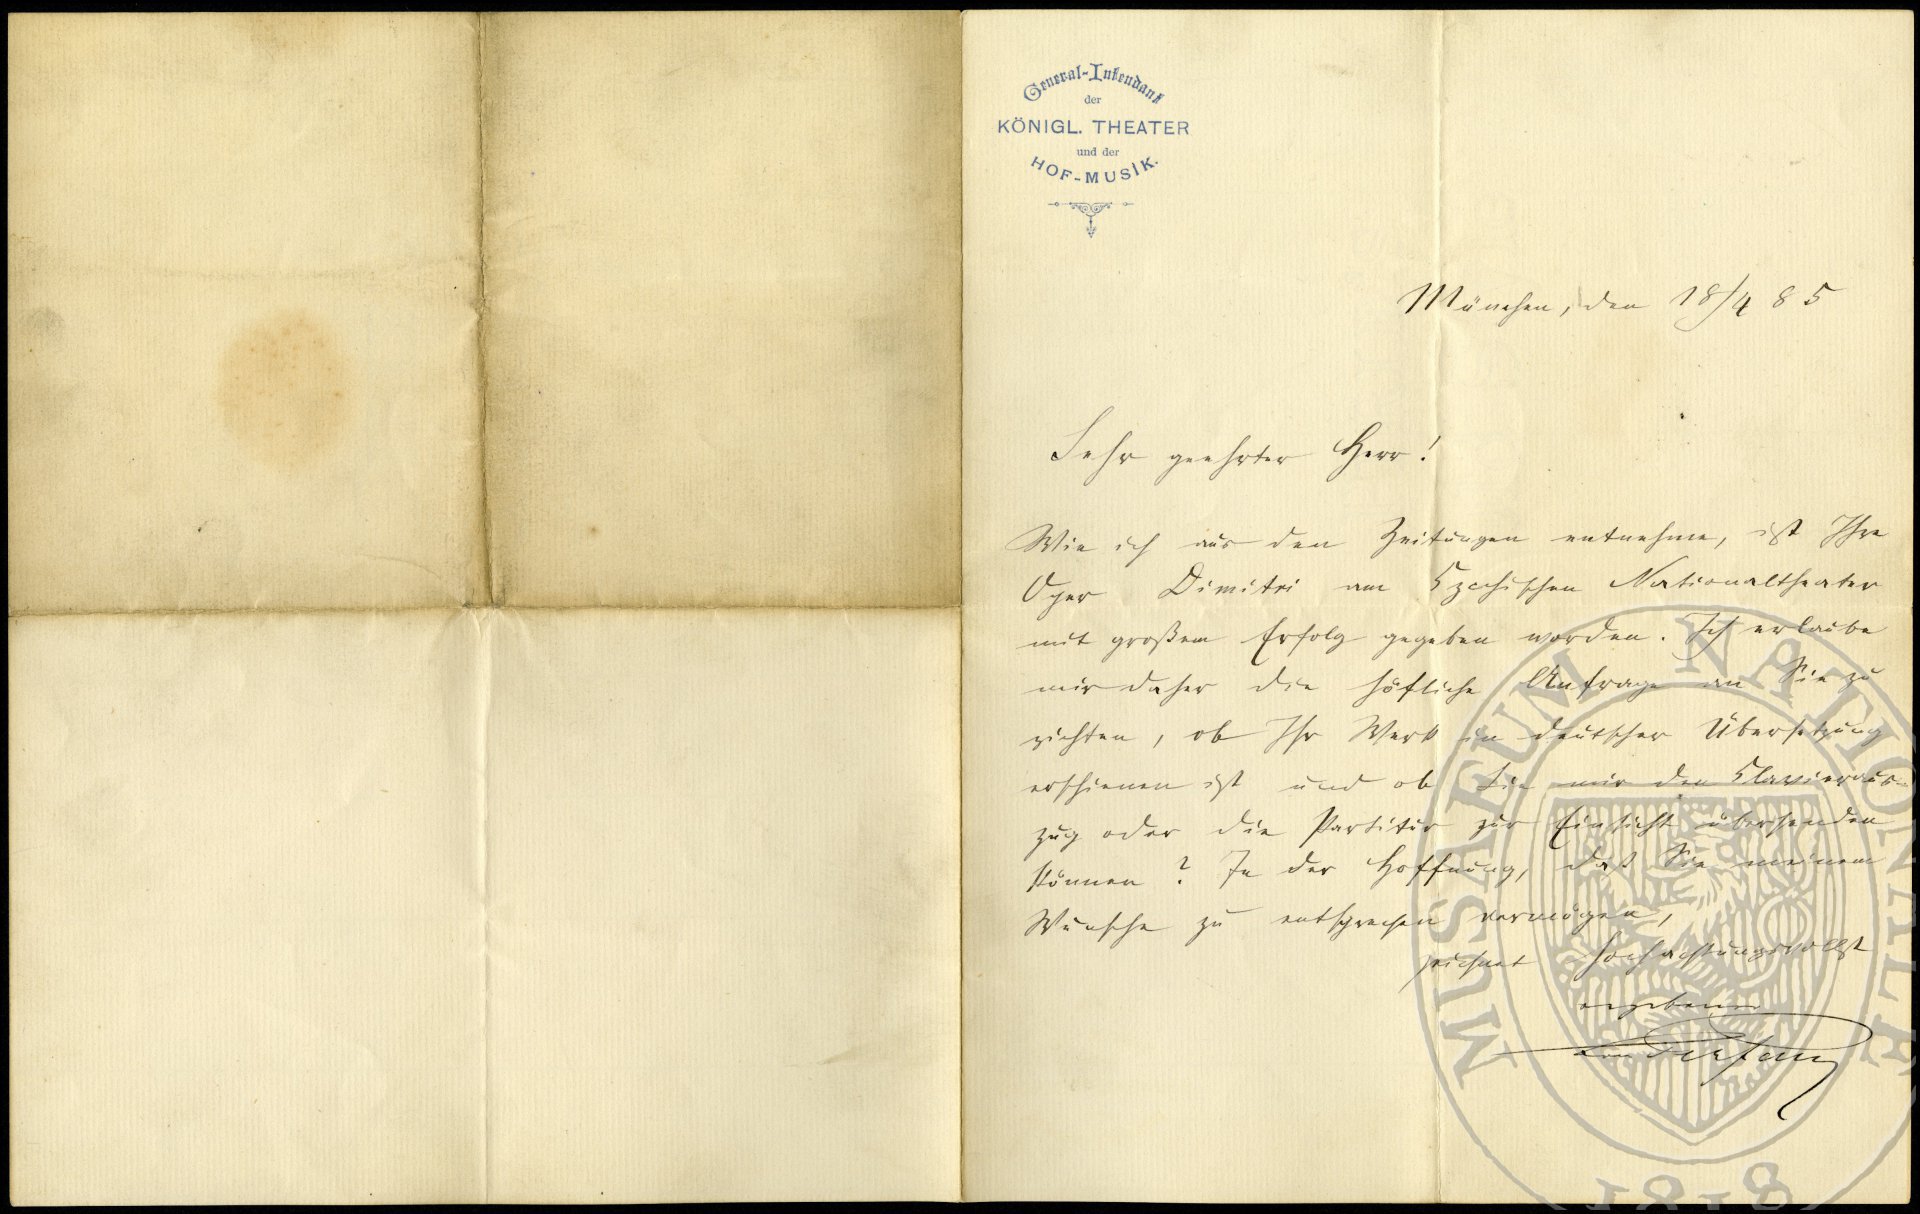 General-Intendant
der
KÖNIGL. THEATER
und der
HOF-MUSIK.
München, den 18/4 85
Sehr geehrter Herr!
Wie ich aus den Zeitungen entnehme, ist Ihre
Oper Dimitri am Czechischen Nationaltheater
mit großem Erfolg gegeben worden. Ich erlaube
mir daher die höfliche Anfrage an Sie zu
richten, ob Ihr Werk in deutscher Übersetzung
erschienen ist und ob Sie mir den Clavieraus-
zug oder die Partitur zur Einsicht übersenden
können? In der Hoffnung, daß Sie meinem
Wunsche zu entsprechen vermögen,
zeichnet hochachtungsvollst
ergebenst
von Perfall
MUSAEUM NATIONALE
1818